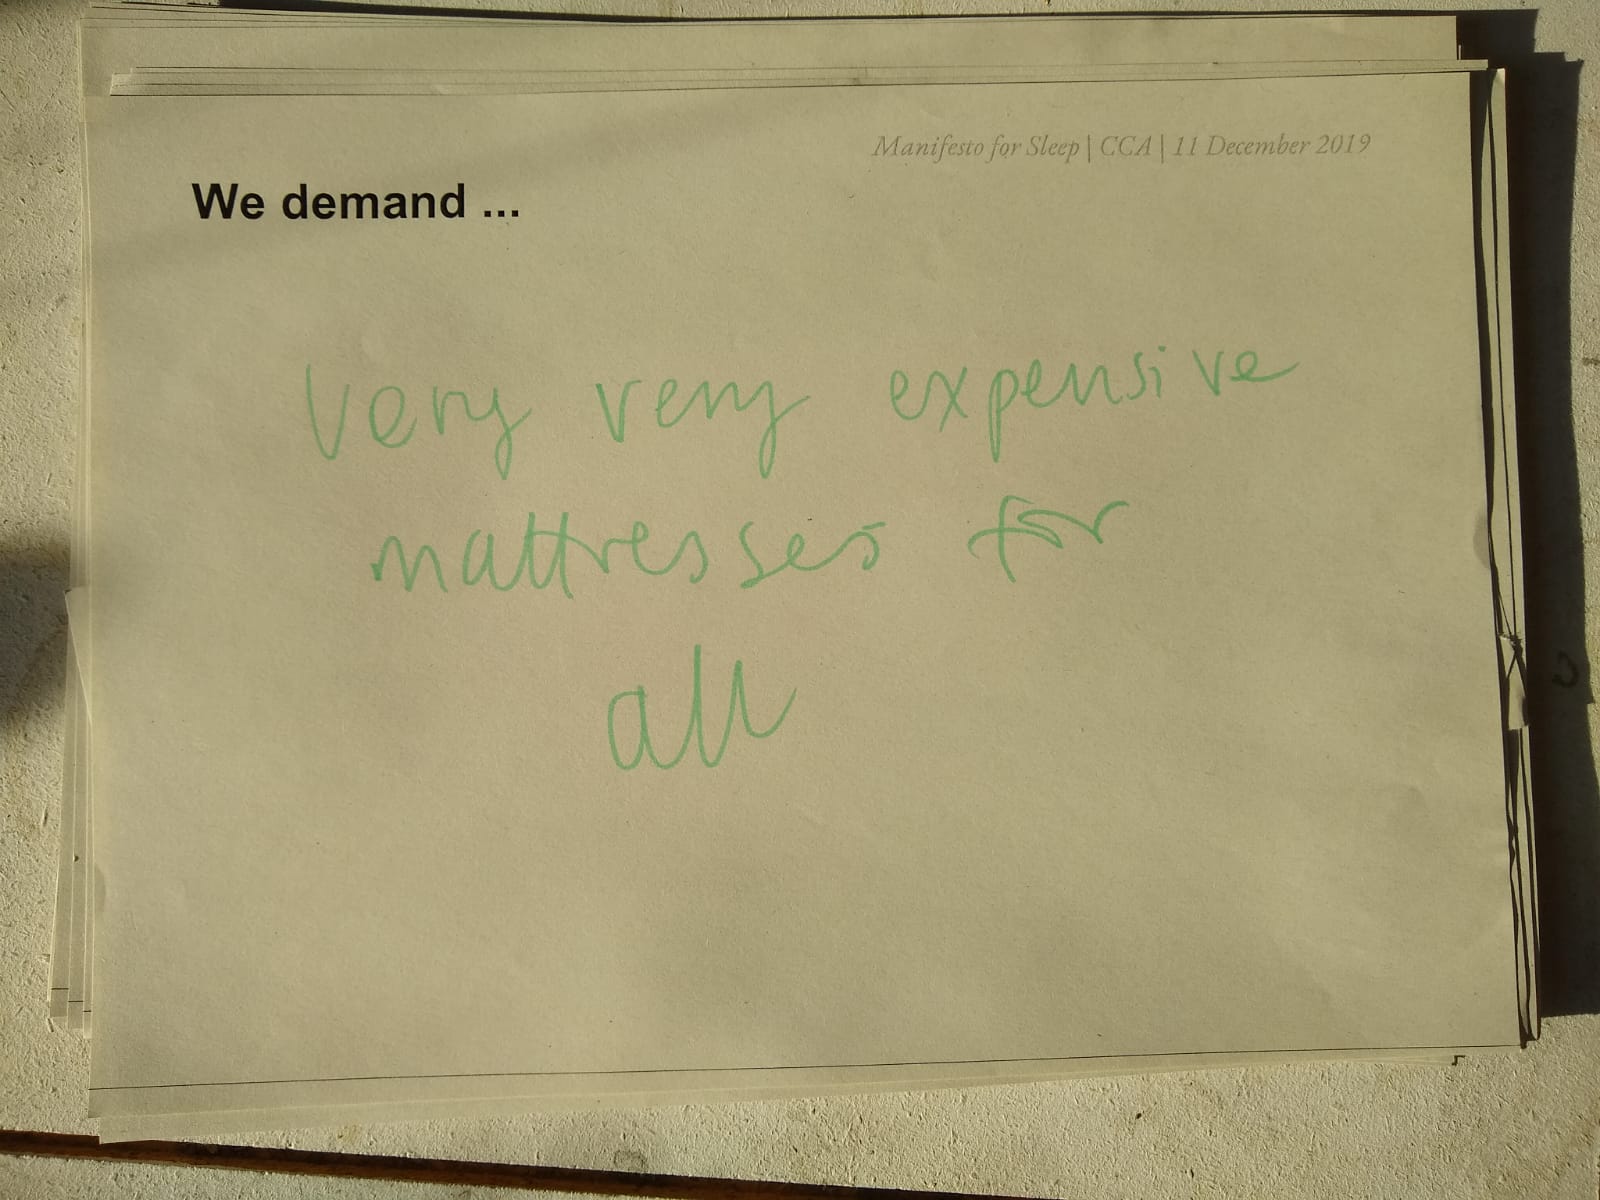 Manifesto for Sleep | CCA | 11 December 2019
We demand ...
Very very expensive
mattresses for
all